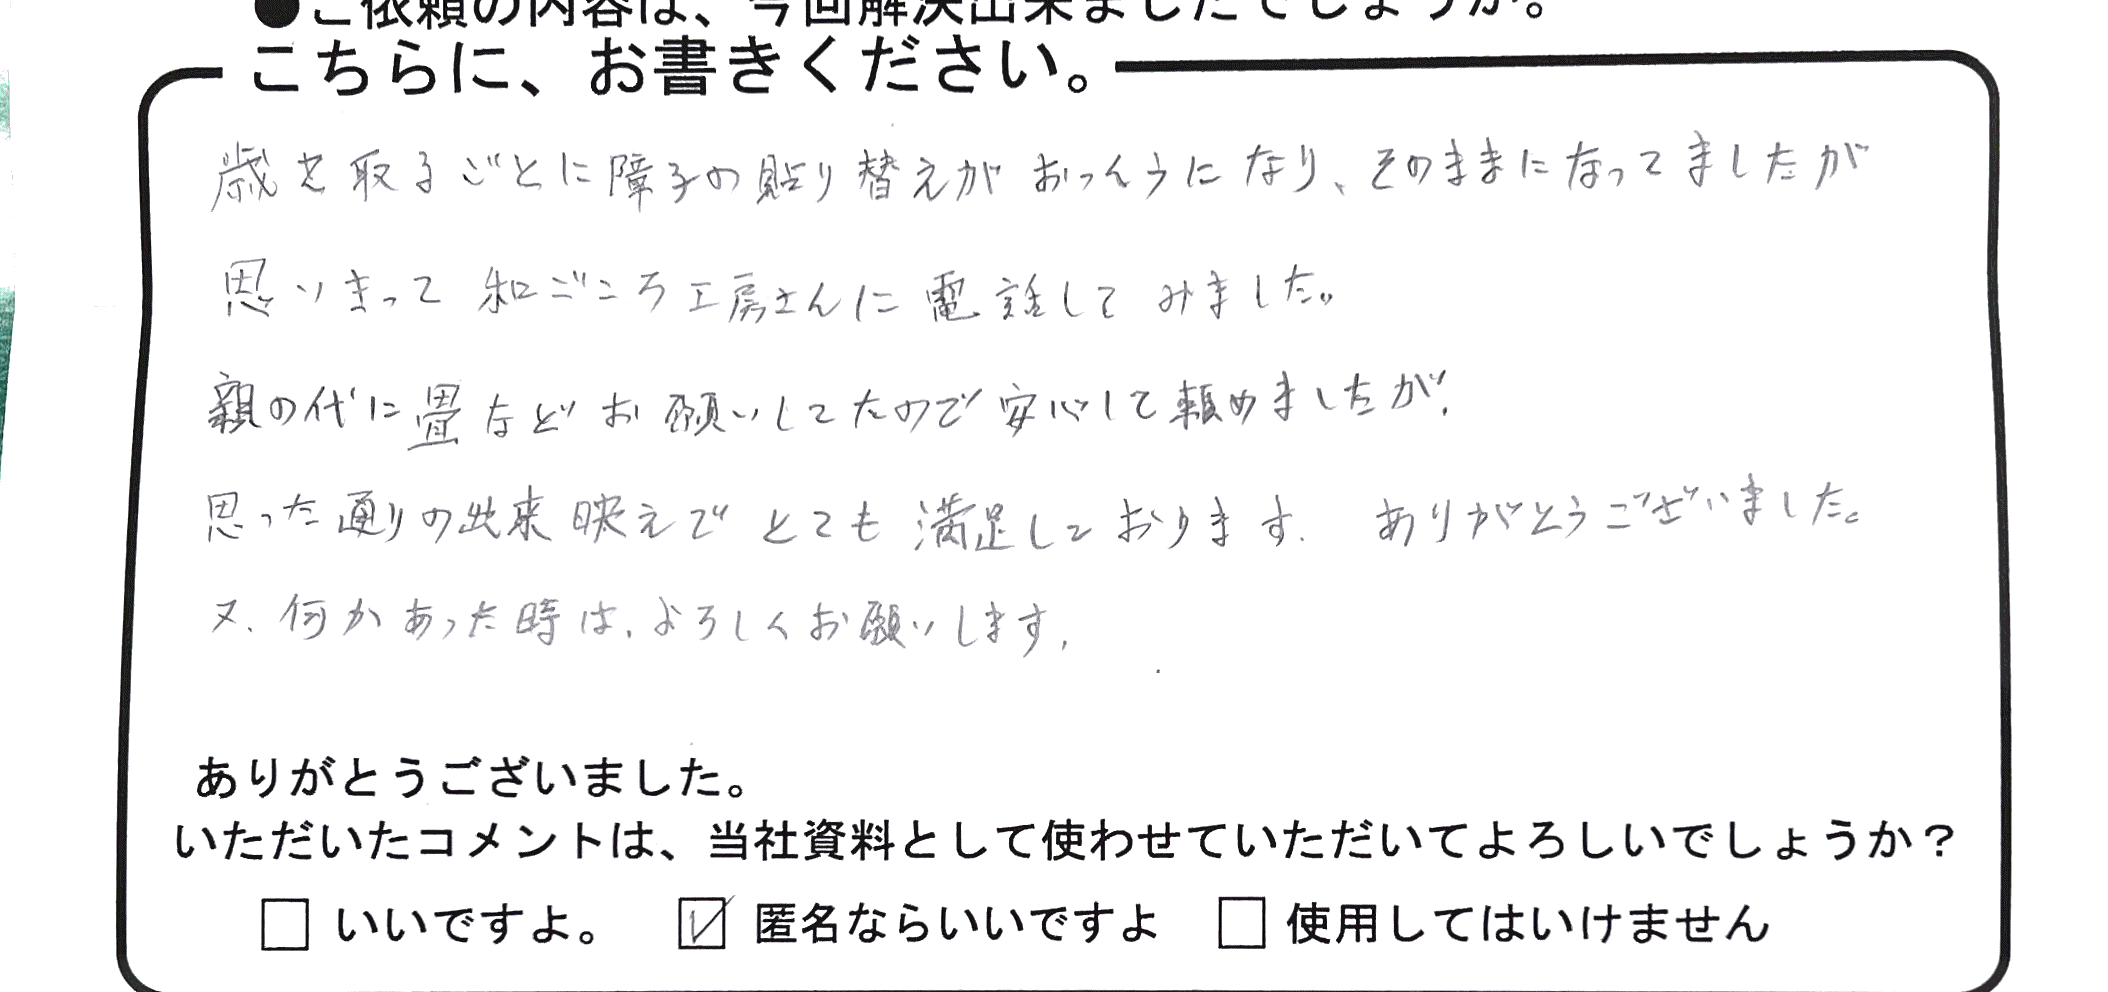 ●ご依頼の内容は、今回解決出来ましたでしょうか。
こちらに、お書きください。
歳を取るごとに障子の貼り替えがおっくうになり、そのままになってましたが
思いきって和ごころ工房さんに電話してみました。
親の代に畳などお願いしてたので安心して頼めましたが、
思った通りの出来映えでとても満足しております。ありがとうございました。
又、何かあった時は、よろしくお願いします。
ありがとうございました。
いただいたコメントは、当社資料として使わせていただいてよろしいでしょうか?
□ いいですよ。 ☑ 匿名ならいいですよ □ 使用してはいけません